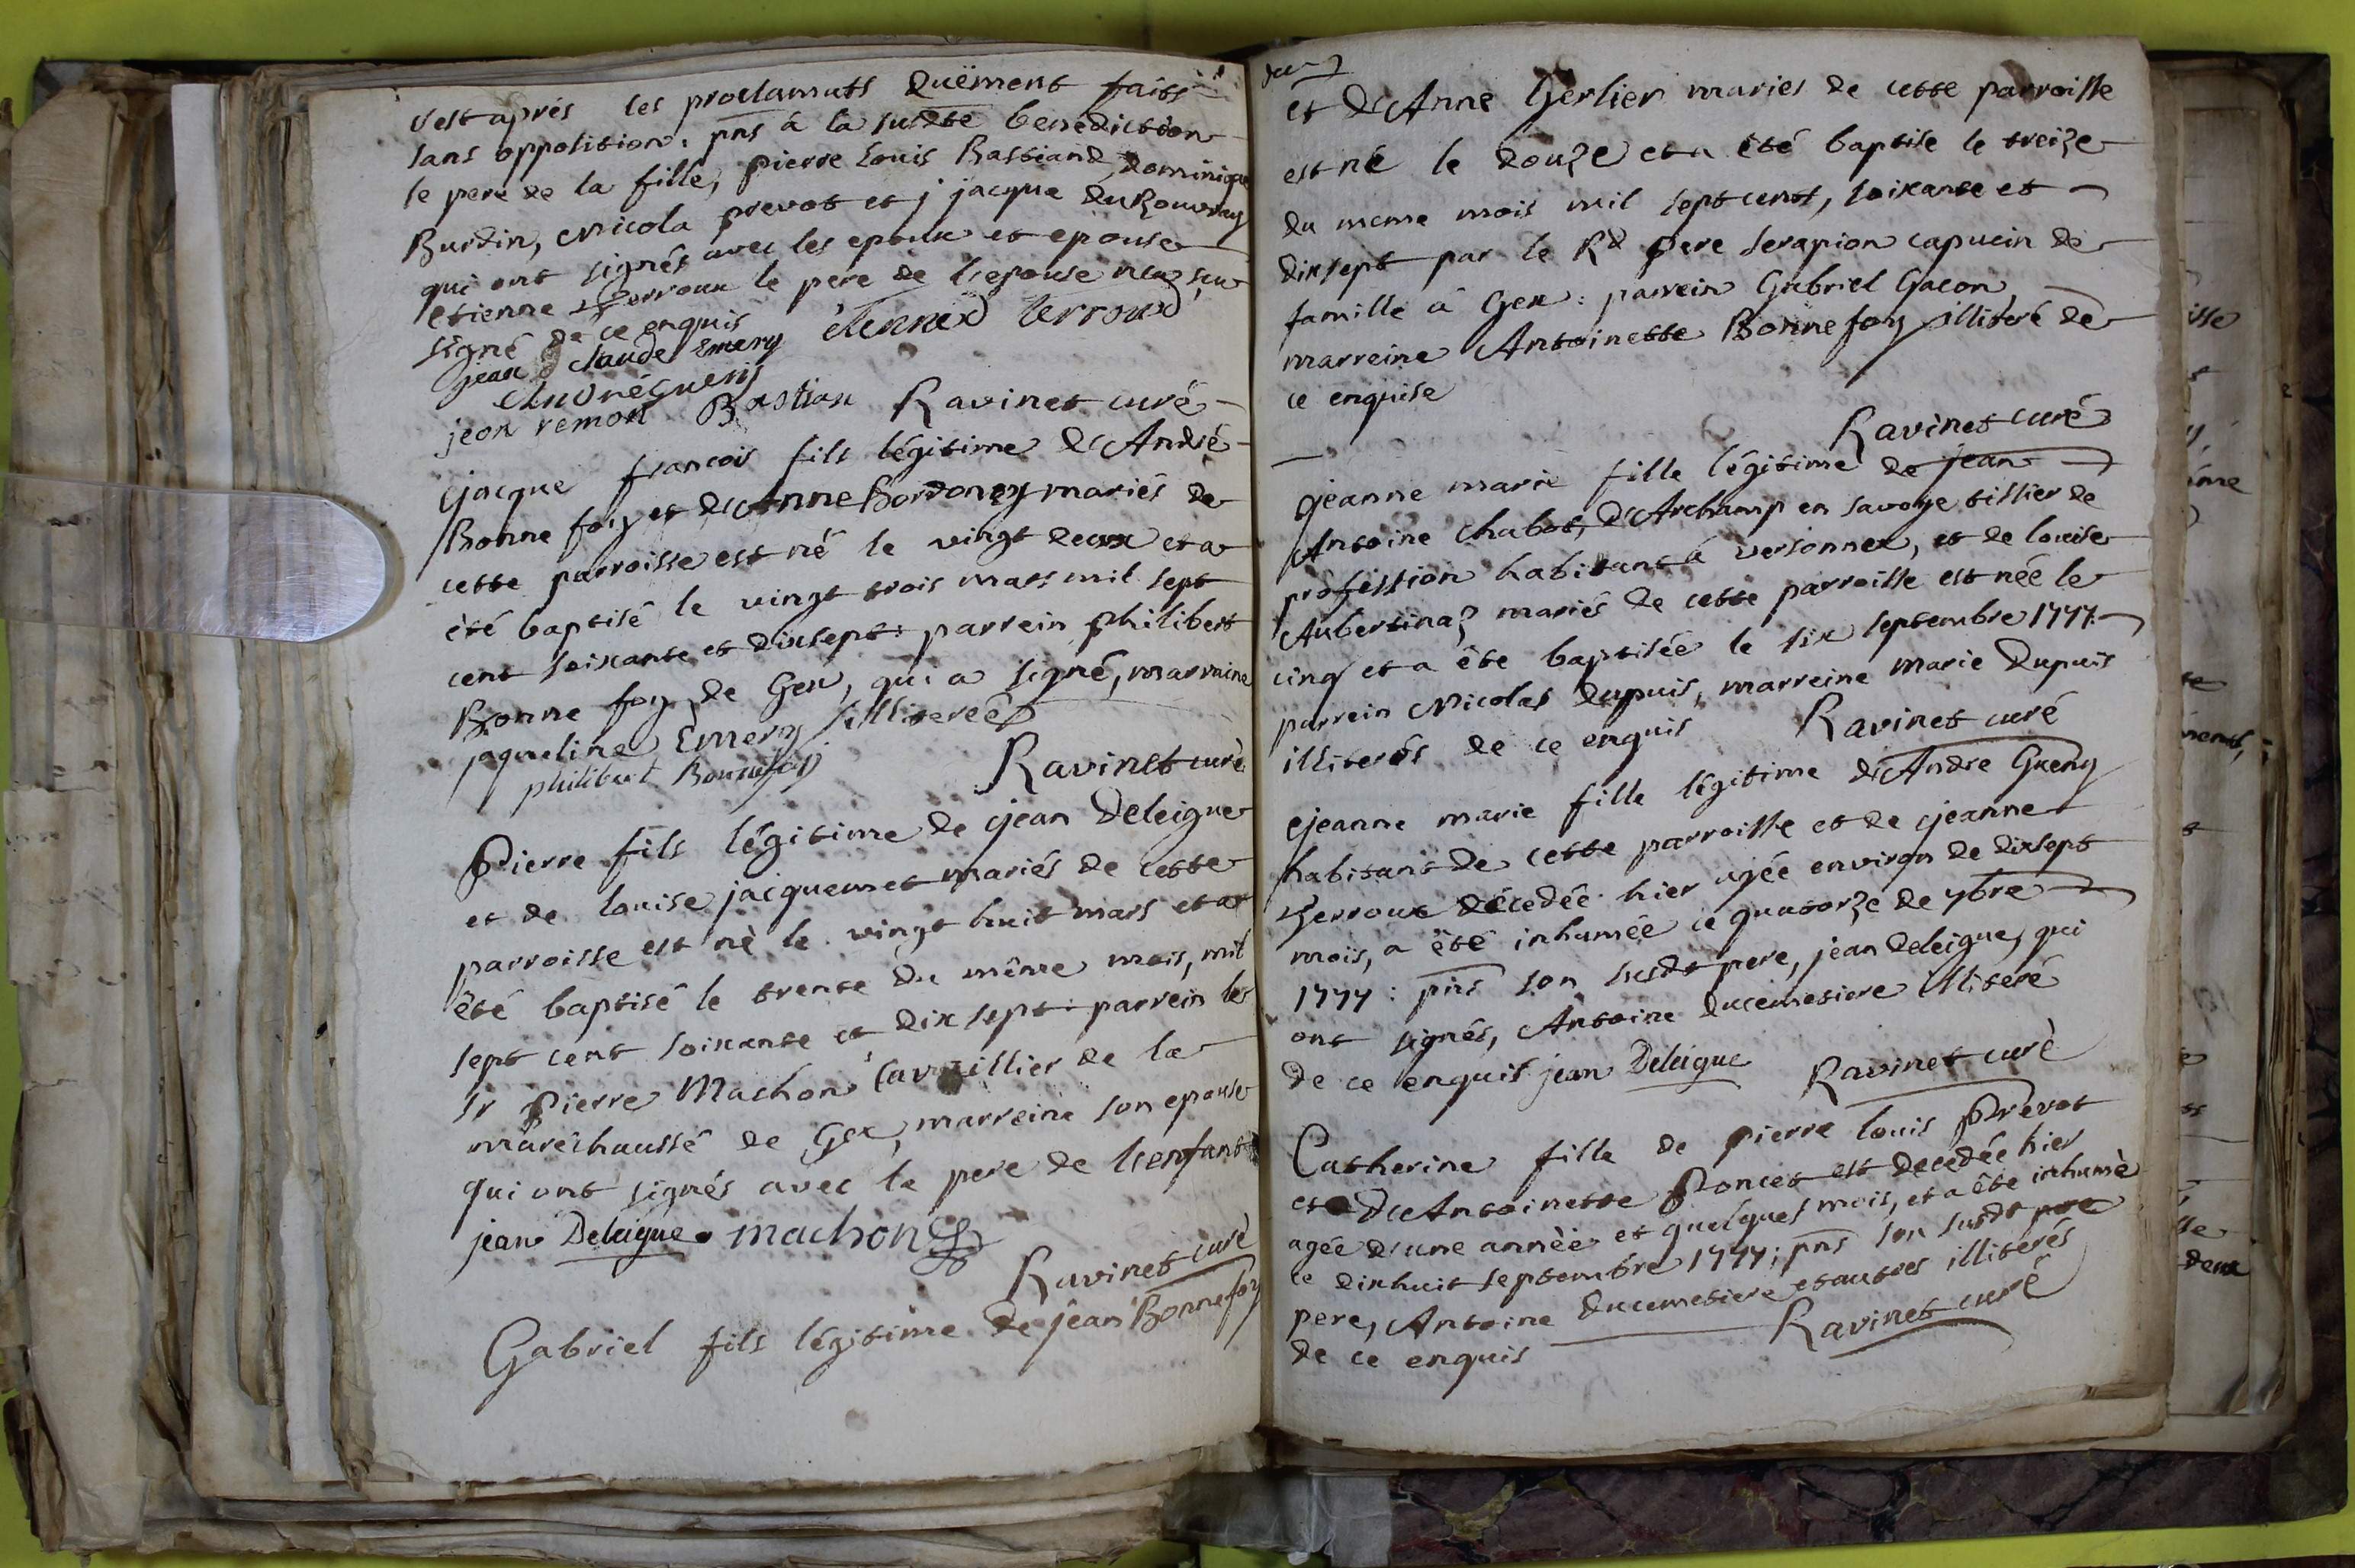 c'est aprés les proclamats duëment faits
sans opposition. pns à la susdte benediction
le pere de la fille, pierre Louis Bastiand, Dominique
Burdin, Nicola prevot et j jacque duRouvray
qui ont signés avec les epoux et epouse
etienne Perroux le pere de l'epouse n'a sçu
signé de ce enquis
jean Claude Emery étienne Verroud
André Gueny
jean remon Bastian Ravinet curé
jacque francois fils légitime d'André
Bonne foy et d'Anne Bordoney mariés de
cette parroisse est né le vingt deux et a
été baptisé le vingt trois mars mil sept
cent soixante et dixsept: parrein philibert
Bonne foy de Gex, qui a signé, marraine
jaqueline Emery illiterée
philibert Bonnefoy Ravinet curé
Pierre fils légitime de jean Deleigue
et de louise jaiquemet mariés de cette
parroisse est né le vingt huit mars et a
été baptisé le trente du même mois, mil
sept cent soixante et dix sept: parrein le
Sr Pierre Machon Cavaillier de la
maréchaussé de Gex, marreine son epouse
qui ont signés avec le pere de l'enfant
jean Deleigue machon
Ravinet curé
Gabriel fils légitime de jean Bonnefoy
et d'Anne Gerlier mariés de cette parroisse
est né le douze et a été baptise le treize
du meme mois mil sept cent, soixante et
dixsept par le Rd pere serapion capucin de
famille à Gex: parrein Gabriel Gacon
marreine Antoinette Bonnefoy illiteré de
ce enquise
Ravinet curé
jeanne marie fille légitime de jean
Antoine Chabot, d'Archamp en savoye tissier de
profession habitant à versonnex, et de louise
Aubertina mariés de cette parroisse est née le
cinq et a éte baptisée le six septembre 1777.
parrein Nicolas dupuis, marreine marie Dupuis
illiterés de ce enquis Ravinet curé
jeanne marie fille légitime d'Andre Gueny
habitant de cette parroisse et de jeanne
Verroux décedée hier agée environ de dixsept
mois, a été inhumée ce quatorze de 7bre
1777: pns son susdt pere, jean deleigue, qui
ont signés, Antoine ducimetiere illiteré
de ce enquis jean Deleigue Ravinet curé
Catherine fille de pierre louis Prevot
et d'Antoinette Poncet est decedée hier
agée d'une année et quelques mois, et a éte inhumè
ce dixhuit septembre 1777; pns son susdt pere
pere, Antoine ducemetiere et autres illiterés
de ce enquis Ravinet curé